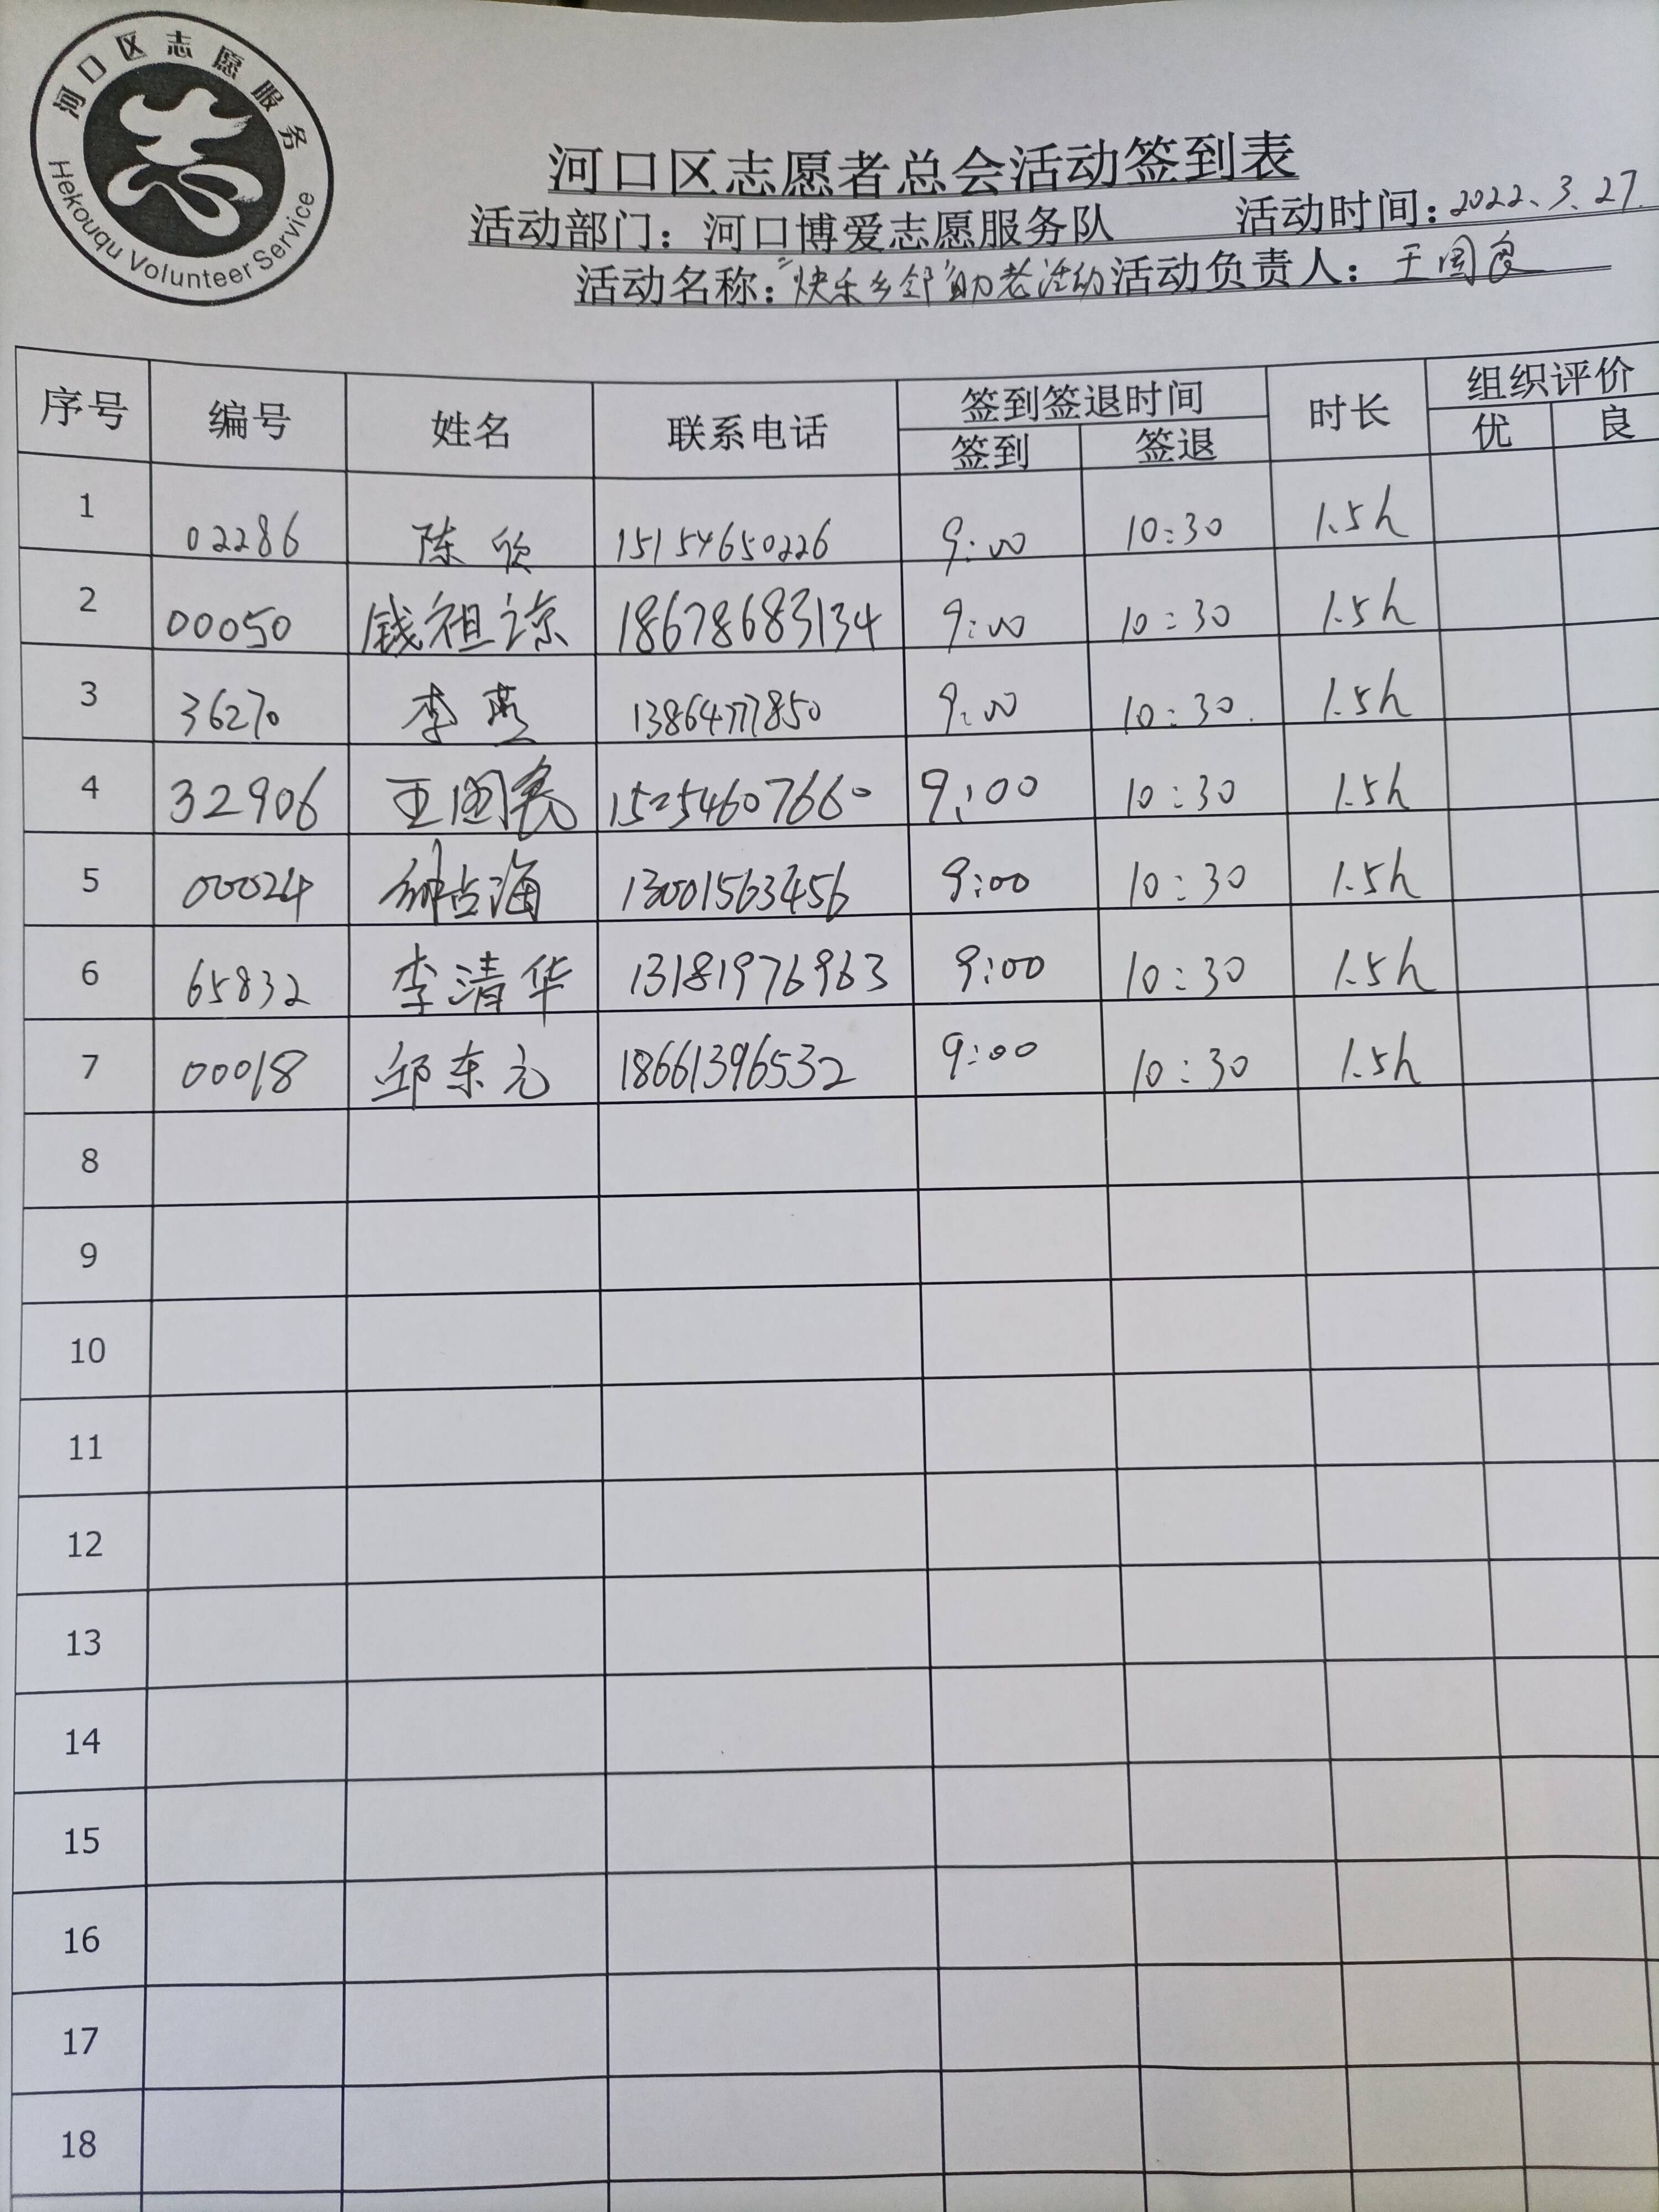 河口区志愿服务
Hekouqu Volunteer Service
河口区志愿者总会活动签到表
活动部门：河口博爱志愿服务队 活动时间：2022.3.27.
活动名称：“快乐乡邻”助老活动 活动负责人：王国良
序号 编号 姓名 联系电话 签到签退时间 时长 组织评价
签到 签退 优 良
1 02286 陈欣 15154650226 9:00 10:30 1.5h
2 00050 钱祖谅 18678683134 9:00 10:30 1.5h
3 36270 李燕 13864777850 9:00 10:30. 1.5h
4 32906 王国良 15254607660 9:00 10:30 1.5h
5 00024 钟占海 13001563456 9:00 10:30 1.5h
6 65832 李清华 13181976963 9:00 10:30 1.5h
7 00018 邱东元 18661396532 9:00 10:30 1.5h
8
9
10
11
12
13
14
15
16
17
18